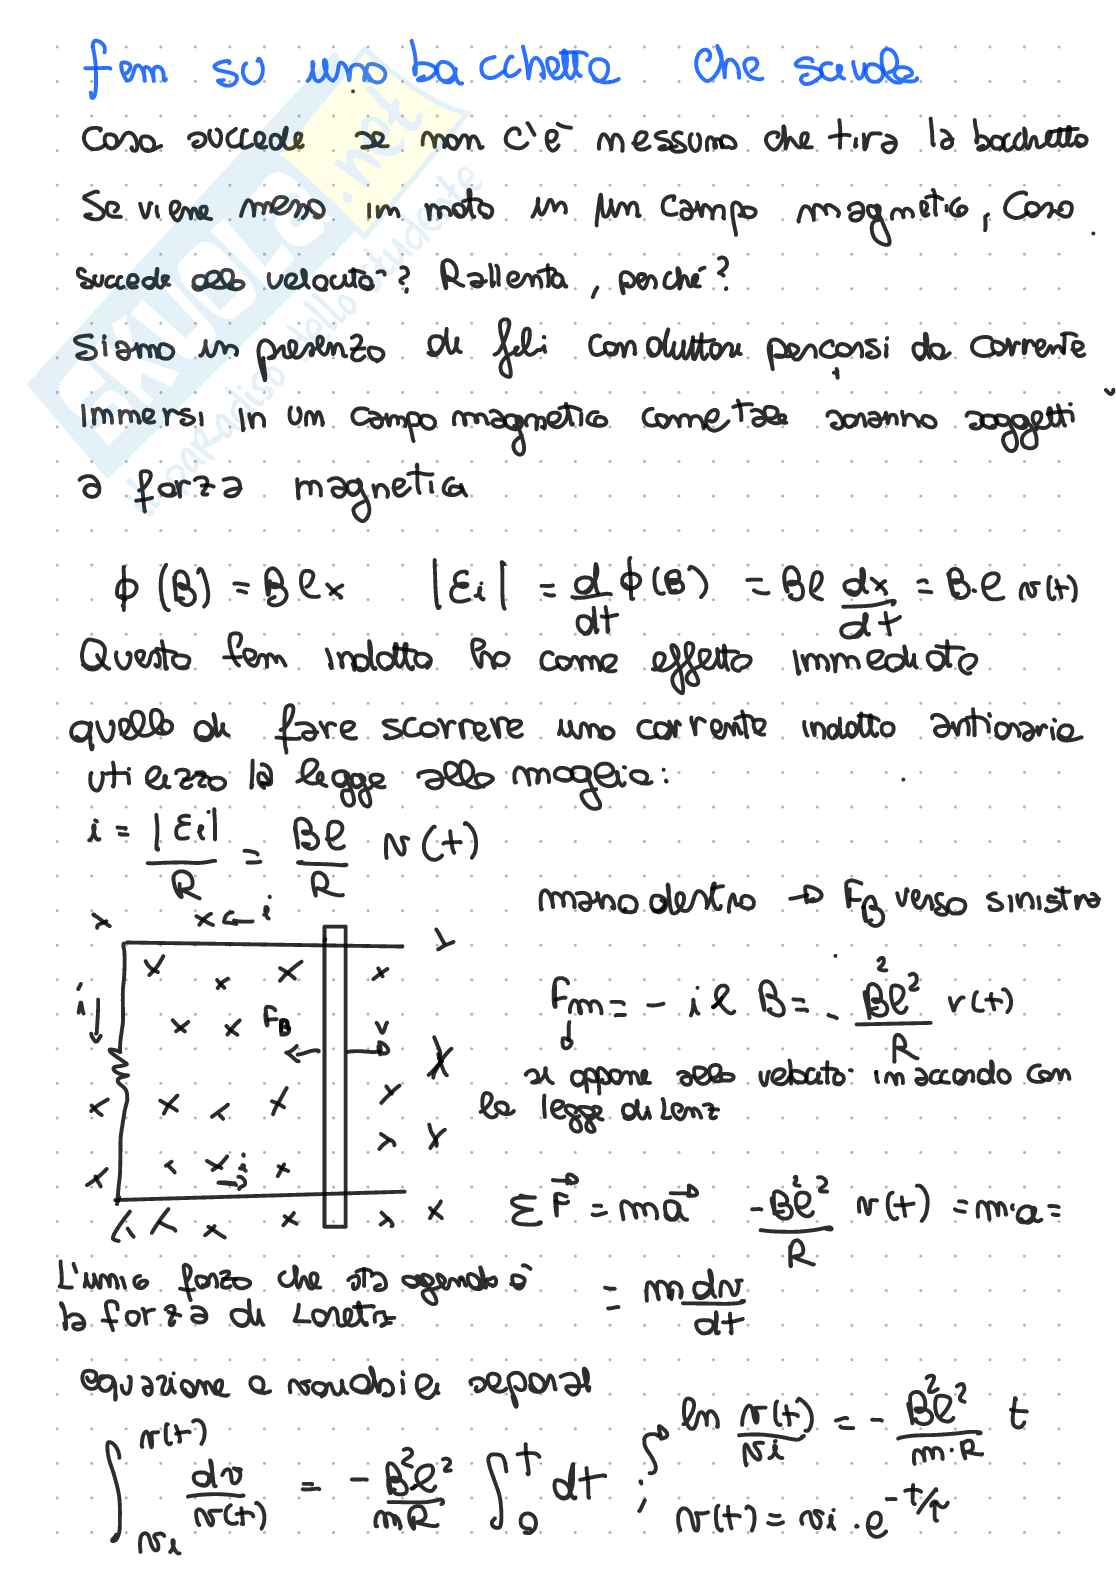 fem su una bacchetta che scivola
Cosa succede se non c'è nessuno che tira la bacchetta
Se viene messo in moto in un campo magnetico, Cosa
succede alla velocità? Rallenta, perché?
Siamo in presenza di fili conduttori percorsi da corrente
immersi in un campo magnetico come tale saranno soggetti
a forza magnetica
ϕ(B) = Bℓx |εi| = d/dt ϕ(B) = Bℓ dx/dt = B·ℓ v(t)
Questa fem indotta ha come effetto immediato
quello di fare scorrere una corrente indotta antioraria
utilizzo la legge alla maglia:
i = |εi|/R = Bℓ/R v(t)
mano destra → F_B verso sinistra
i
i
F_B
v
i
Fm = - i ℓ B = - B²ℓ²/R v(t)
si oppone alla velocità in accordo con
la legge di Lenz
Σ F⃗ = ma⃗ -B²ℓ²/R v(t) = m·a =
= m dv/dt
L'unica forza che sta agendo è
la forza di Loretz
equazione a variabili separat
∫_{vi}^{v(t)} dv/v(t) = - B²ℓ²/mR ∫_0^t dt ;
ln v(t)/vi = - B²ℓ²/m·R t
v(t) = vi · e^{-t/τ}
SKUOLA.net
il paradiso dello studente